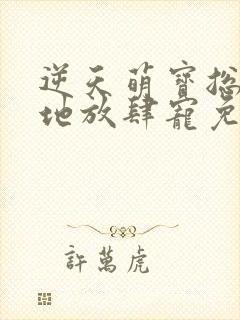 逆天萌寶
地放肆寵
許萬虎